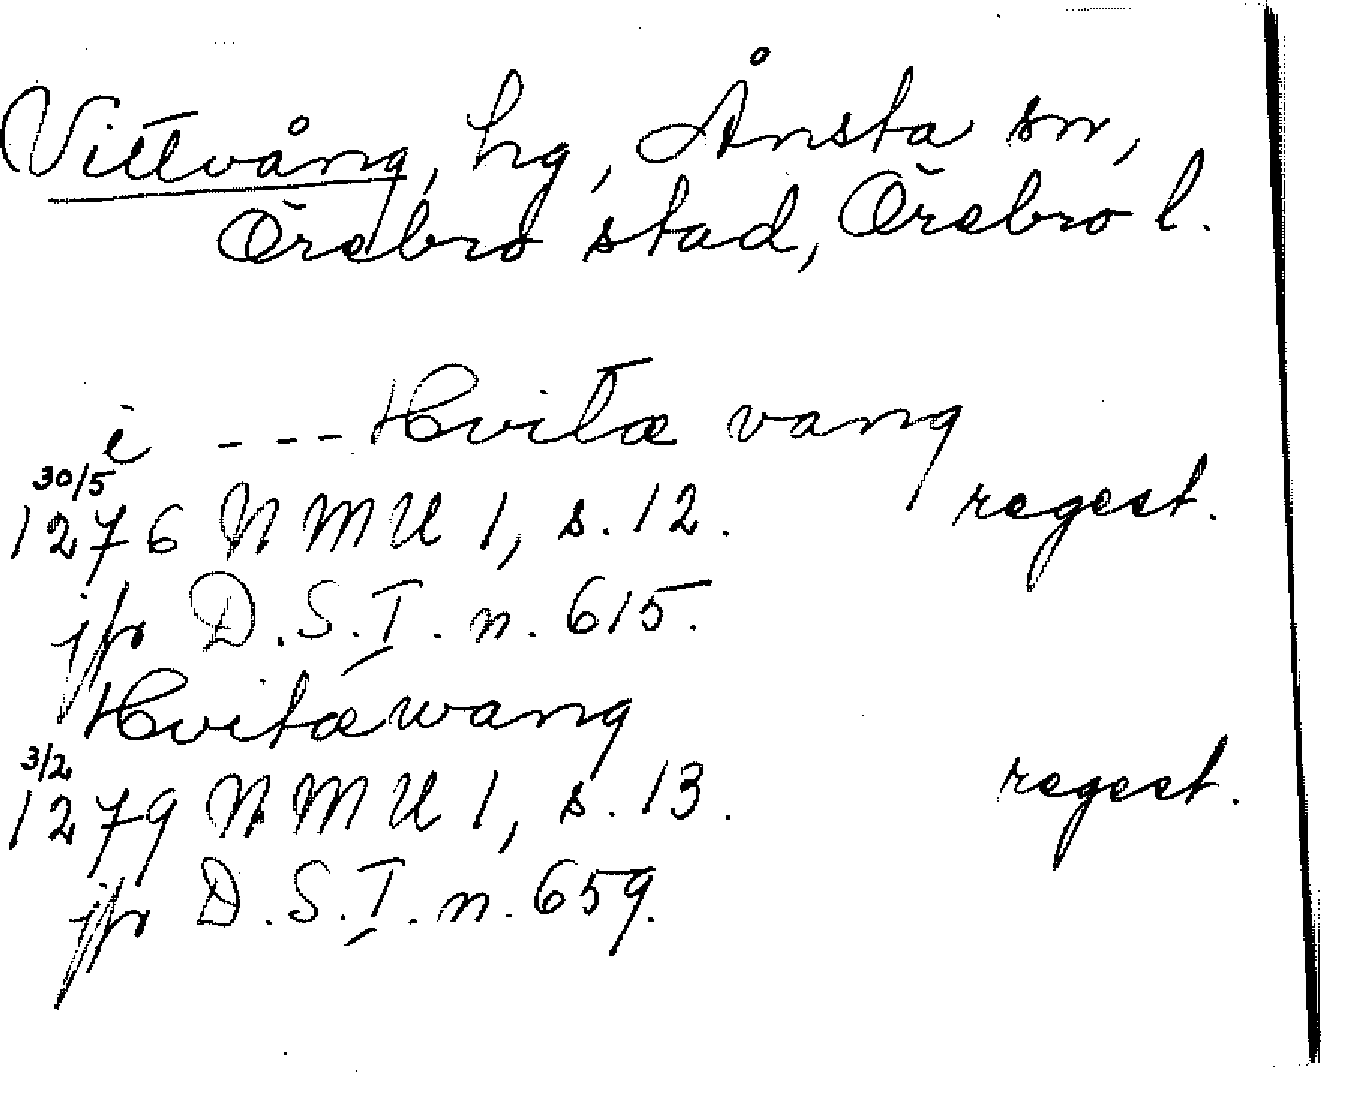 Vittvång, hg, Ånsta sn,
Örebro stad, Örebro l.
i --- Hvitæ vang
30/5
1276 NMU 1, s. 12. regest.
jfr D.S.I. n. 615.
Hvitæwang
3/2
1279 NMU 1, s. 13. regest.
jfr D.S.I. n. 659.